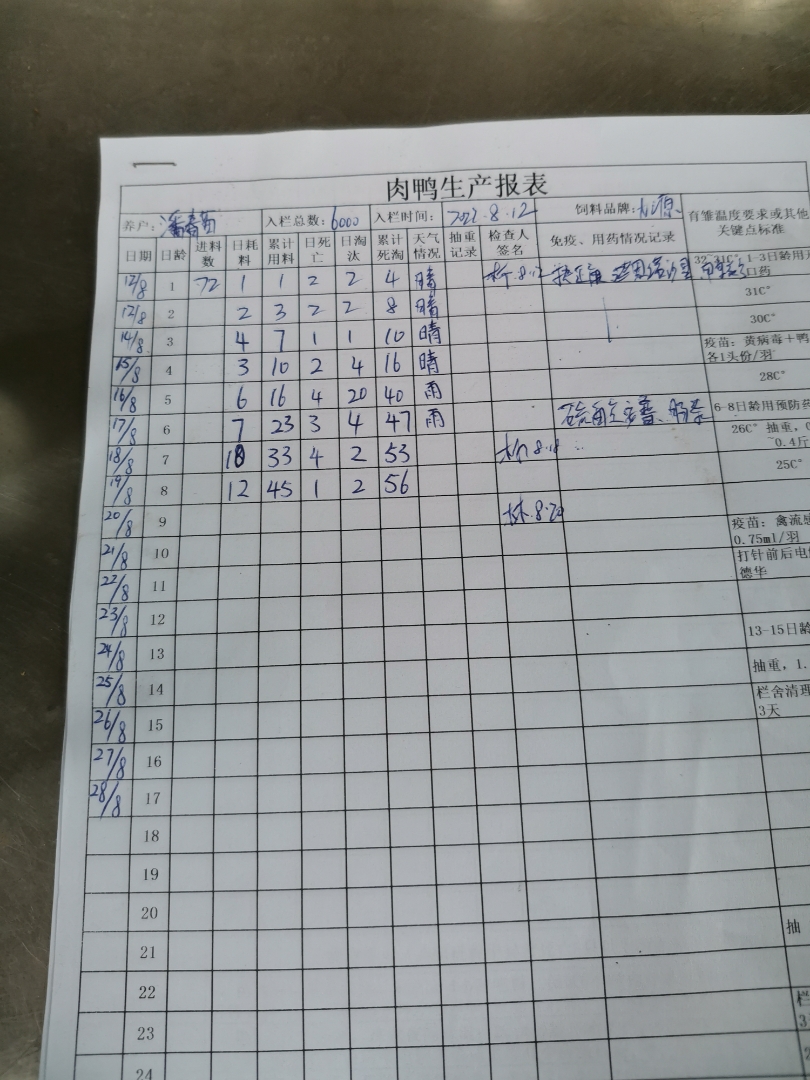 肉鸭生产报表
养户: 潘 入栏总数: 6000 入栏时间: 2022.8.12 饲料品牌: 源 育雏温度要求或其他关键点标准
日期 日龄 进料数 日耗料 累计用料 日死亡 日淘汰 累计死淘 天气情况 抽重记录 检查人签名 免疫、用药情况记录
12/8 1 72 1 1 2 2 4 晴 8.12 32-31C° 1-3日龄用开口药
12/8 2 2 3 2 2 8 晴 31C°
14/8 3 4 7 1 1 10 晴 30C°
15/8 4 3 10 2 4 16 晴 疫苗: 黄病毒+鸭
各1头份/羽
16/8 5 6 16 4 20 40 雨 28C°
17/8 6 7 23 3 4 47 雨 6-8日龄用预防药
18/8 7 10 33 4 2 53 林.8.18 26C° 抽重,0
~0.4斤
19/8 8 12 45 1 2 56 25C°
20/8 9 林.8.20
疫苗: 禽流感
0.75ml/羽
21/8 10 打针前后电
德华
22/8 11
23/8 12
24/8 13 13-15日龄
25/8 14 抽重,1.
26/8 15 栏舍清理
3天
27/8 16
28/8 17
18
19
20
21 抽
22
23 栏
3
24